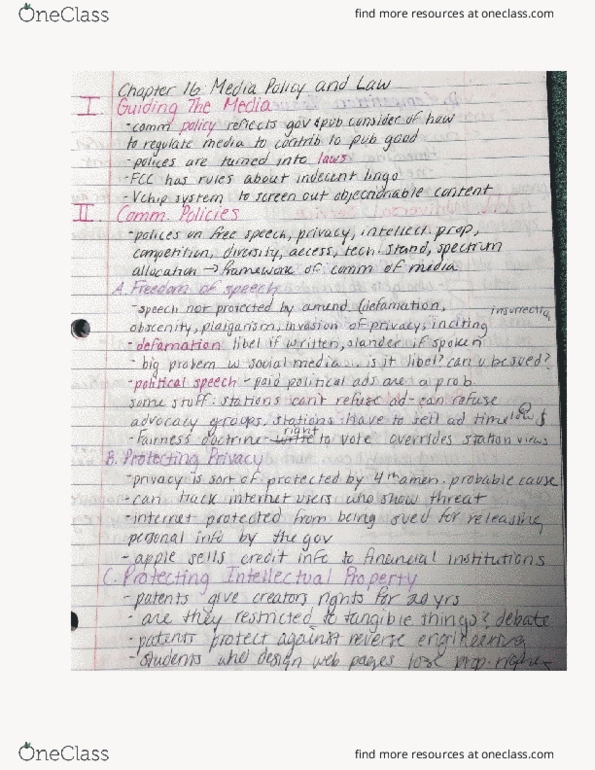 OneClass
find more resources at oneclass.com
Chapter 16: Media Policy and Law
I. Guiding The Media
- comm policy reflects gov & pub consider of how
to regulate media to contrib to pub good
- polices are turned into laws
- FCC has rules about indecent lingo
- Vchip system to screen out objectionable content
II. Comm. Policies
- polices on free speech, privacy, intellect. prop,
competition, diversity, access, tech. stand, spectrum
allocation → framework of comm of media
A. Freedom of speech
- speech not protected by amend (defamation,
obscenity, plaigarism, invasion of privacy, inciting insurrection
- defamation libel if written, slander if spoken
- big problem w social media... is it libel? can u be sued?
- political speech - paid political ads are a prob
some stuff: stations can't refuse ad - can refuse
advocacy groups. stations have to sell ad time low $
- Fairness doctrine - right to vote overrides station views
B. Protecting Privacy
- privacy is sort of protected by 4th amen. probable cause
- can track internet users who show threat
- internet protected from being sued for releasing
personal info by the gov
- apple sells credit info to financial institutions
C. Protecting Intellectual Property
- patents give creators rights for 20 yrs
- are they restricted to tangible things? debate
- patents protect against reverse engineering
- students who design web pages lose prop. rights
OneClass
find more resources at oneclass.com